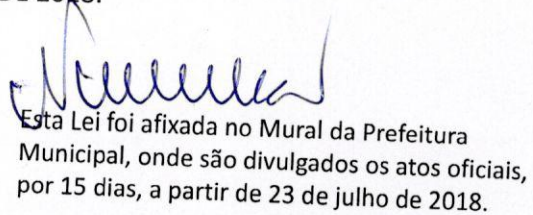 Esta Lei foi afixada no Mural da Prefeitura
Municipal, onde são divulgados os atos oficiais,
por 15 dias, a partir de 23 de julho de 2018.